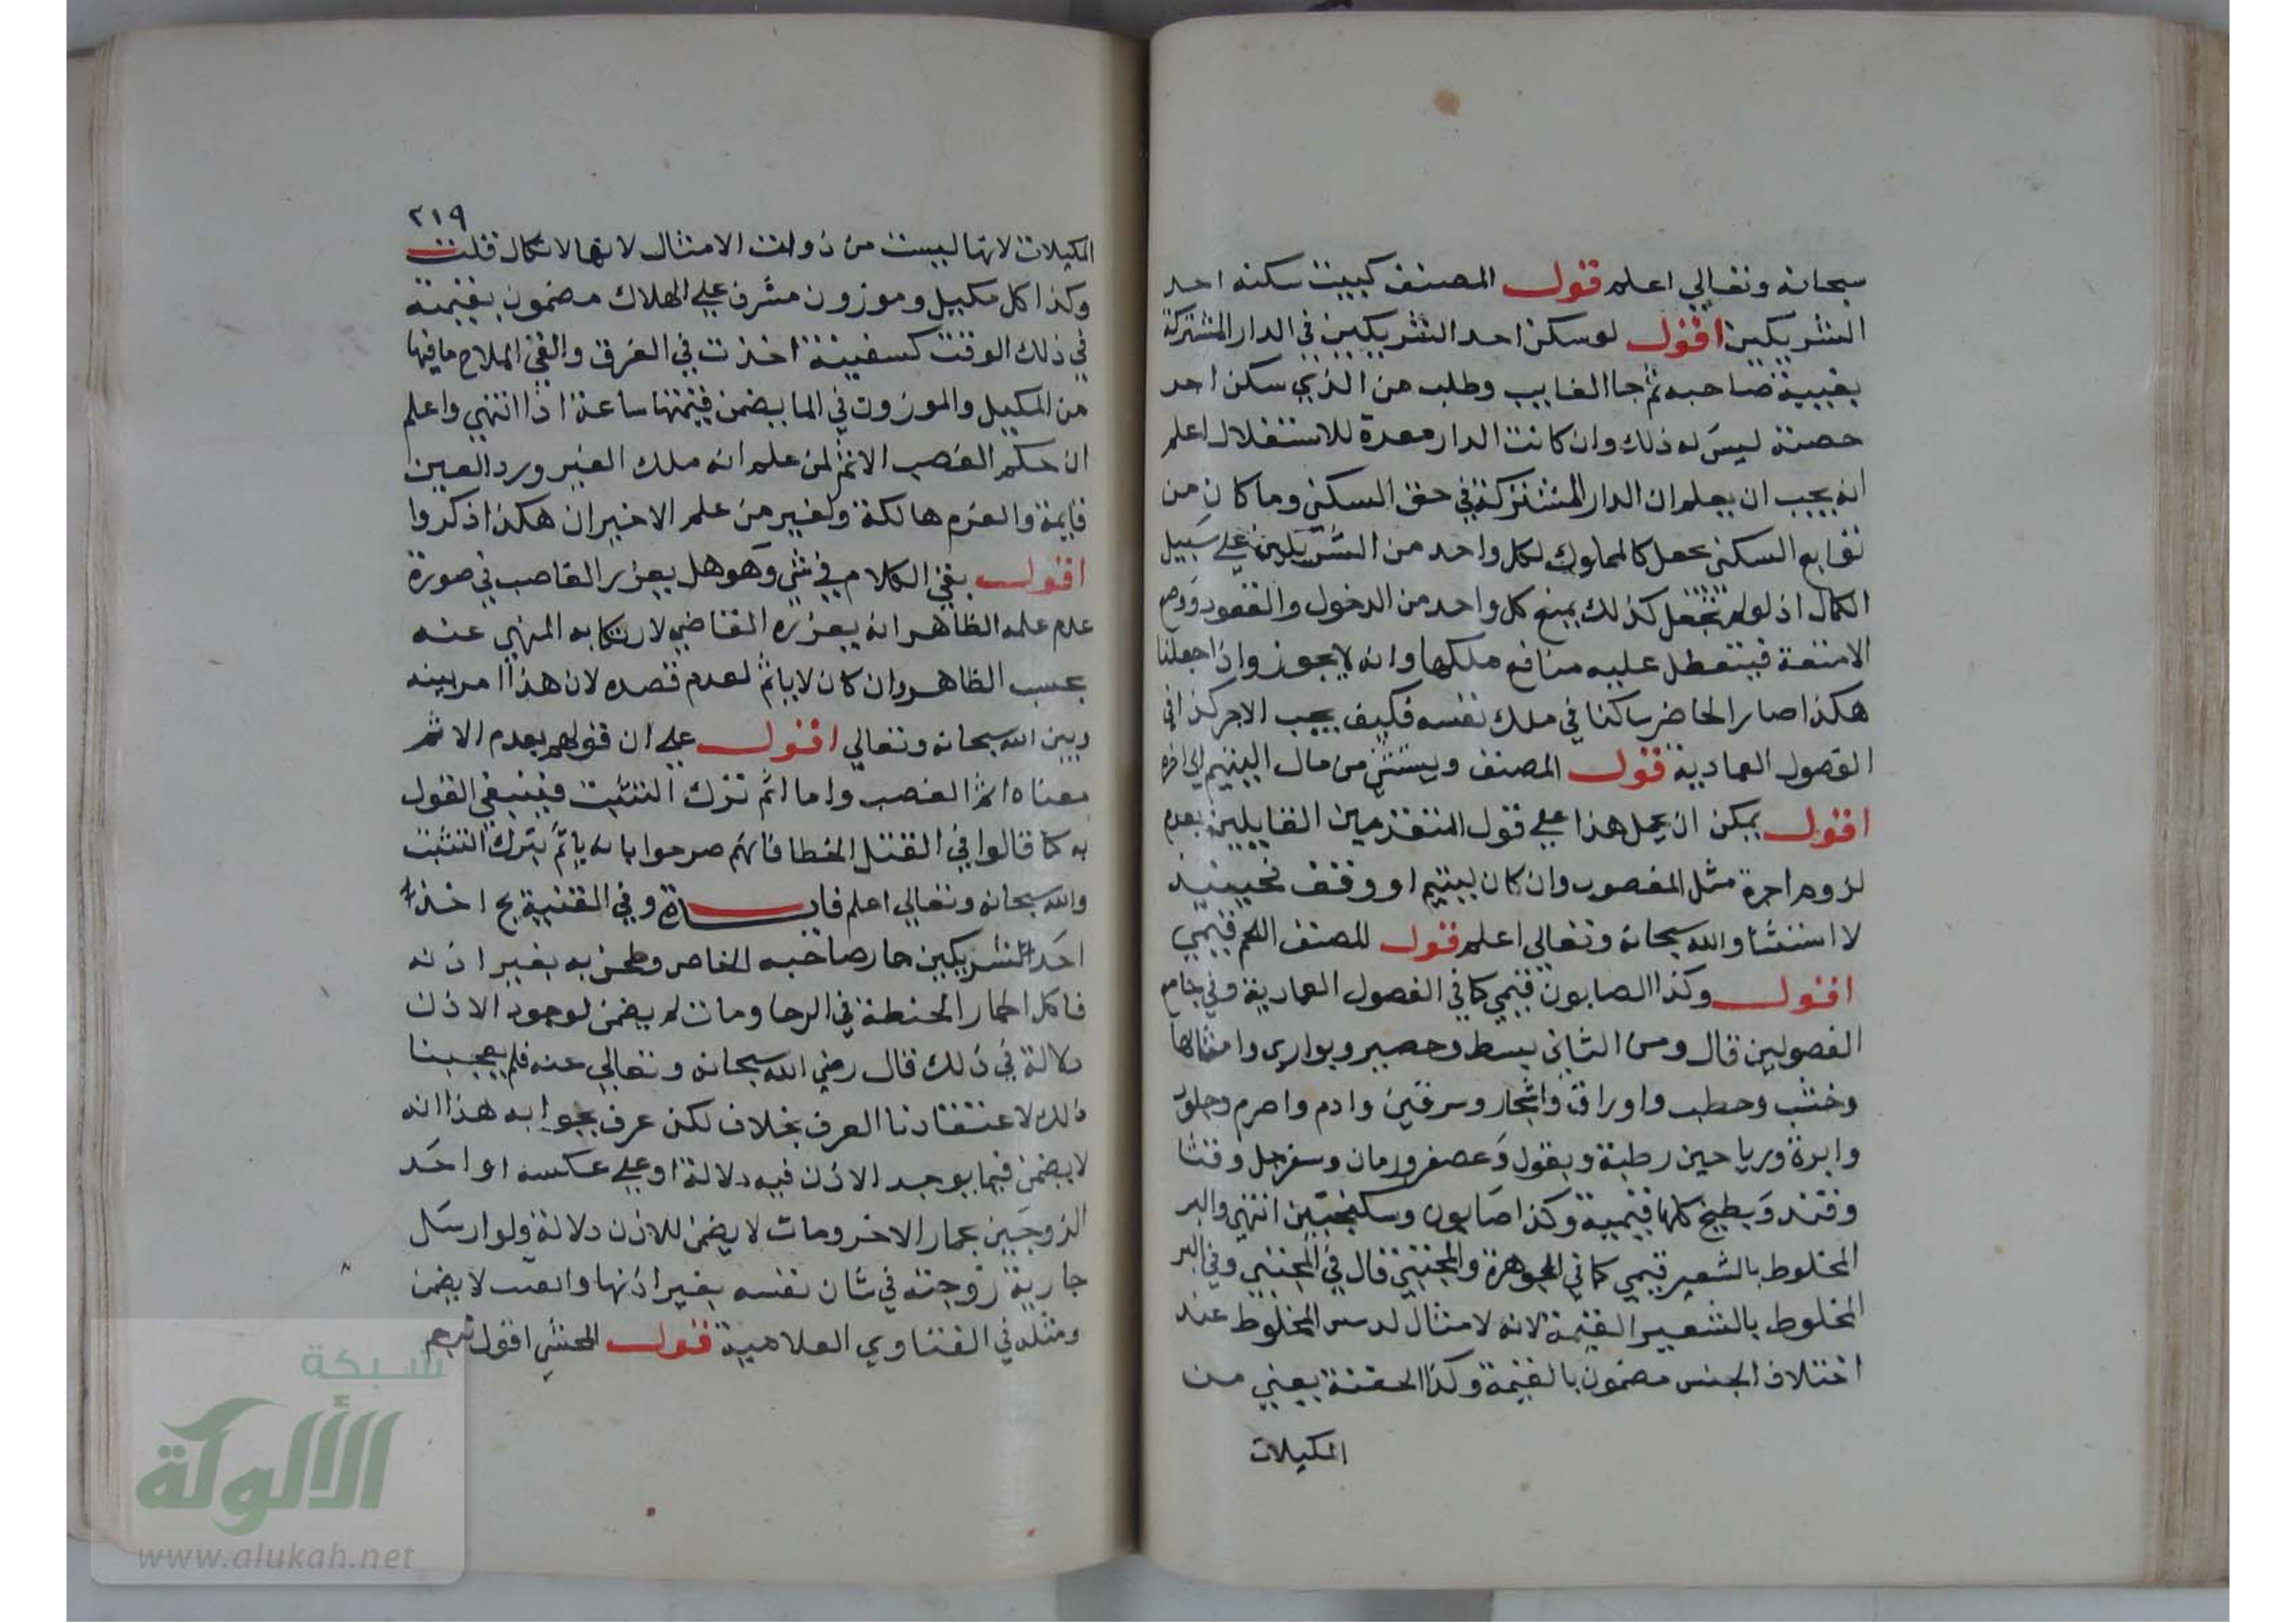 سبحانه وتعالي اعلم قول المصنف كبيت سكنه احد
الشريكين اقول لو سكن احد الشريكين في الدار المشتركة
بغيبة صاحبه ثم جا الغايب وطلب من الذي سكن احد
حصته ليس له ذلك وان كانت الدار معدة للاستغلال اعلم
انه يجب ان يعلم ان الدار المشتركة في حق السكني وما كان من
توابع السكني تجعل كالمملوك لكل واحد من الشريكين علي سبيل
الكمال اذ لو لم تجعل كذلك يمنع كل واحد من الدخول والقعود ووضع
الامتعة فيتعطل عليه منافع ملكها وانه لا يجوز واذا جعلنا
هكذا صار الحاضر ساكنا في ملك نفسه فكيف يجب الاجر كذا في
الفصول العمادية قول المصنف ويستثني من مال اليتيم الي اخره
اقول يمكن ان يحمل هذا علي قول المتقدمين القايلين بعدم
لزوم اجرة مثل المغصوب وان كان ليتيم او وقف فحينيذ
لا استثنا والله سبحانه وتعالي اعلم قول المصنف اللحم قيمي
اقول وكذا الصابون قيمي كما في الفصول العمادية وفي جامع
الفصولين قال ومن الثاني بسط وحصير وبواري وامثالها
وخشب وحطب واوراق واشجار وسرقين وادم واصرم وجلود
وابرة ورياحين رطبة وبقول وعصفر ورمان وسفرجل وقثا
وقتد وبطيخ كلها قيمية وكذا صابون وسكنجبين انتهي والبر
المخلوط بالشعير قيمي كما في الجوهرة والمجتبي قال في المجتبي وفي البر
المخلوط بالشعير القيمة لانه لا مثال له من المخلوط عند
اختلاف الجنس مضمون بالقيمة وكذا الحفنة يعني من
المكيلات
٢١٩
المكيلات لانها ليست من ذوات الامثال لانها لا تكال قلت
وكذا كل مكيل وموزون مشرف علي الهلاك مضمون بقيمته
في ذلك الوقت كسفينة اخذت في الغرق والقي الملاح ما فيها
من المكيل والموزون في الما يضمن قيمتها ساعة اذا انتهي واعلم
ان حكم الغصب الاثم لمن علم انه ملك الغير ورد العين
قايمة والغرم هالكة ولغير من علم الاخيران هكذا ذكروا
اقول بقي الكلام في شي وهو هل يعزر الغاصب في صورة
عدم علمه الظاهر انه يعزره القاضي لارتكابه المنهي عنه
بحسب الظاهر وان كان لا ياثم لعدم قصده لان هذا امر بينه
وبين الله سبحانه وتعالي اقول علي ان قولهم بعدم الاثم
معناه اثم الغصب واما اثم ترك التثبت فينبغي القول
به كما قالوا في القتل الخطا فانهم صرحوا بانه ياثم بترك التثبت
والله سبحانه وتعالي اعلم فايدة وفي القنية بخ اخذ
احد الشريكين حمار صاحبه الخاص وطحن به بغير اذنه
فاكل الحمار الحنطة في الرحا ومات لم يضمن لوجود الاذن
دلالة في ذلك قال رضي الله سبحانه وتعالي عنه فلم يعجبنا
ذلك لاعتقادنا العرف بخلاف لكن عرف بجوابه هذا انه
لا يضمن فيما يوجد الاذن فيه دلالة او علي عكسه او احد
الزوجين بحمار الاخر ومات لا يضمن للاذن دلالة ولو ارسل
جارية زوجته في شان نفسه بغير اذنها لا يضمن
ومثله في الفتاوي العلامية قول المحشي اقول
شبكة
الألوكة
www.alukah.net